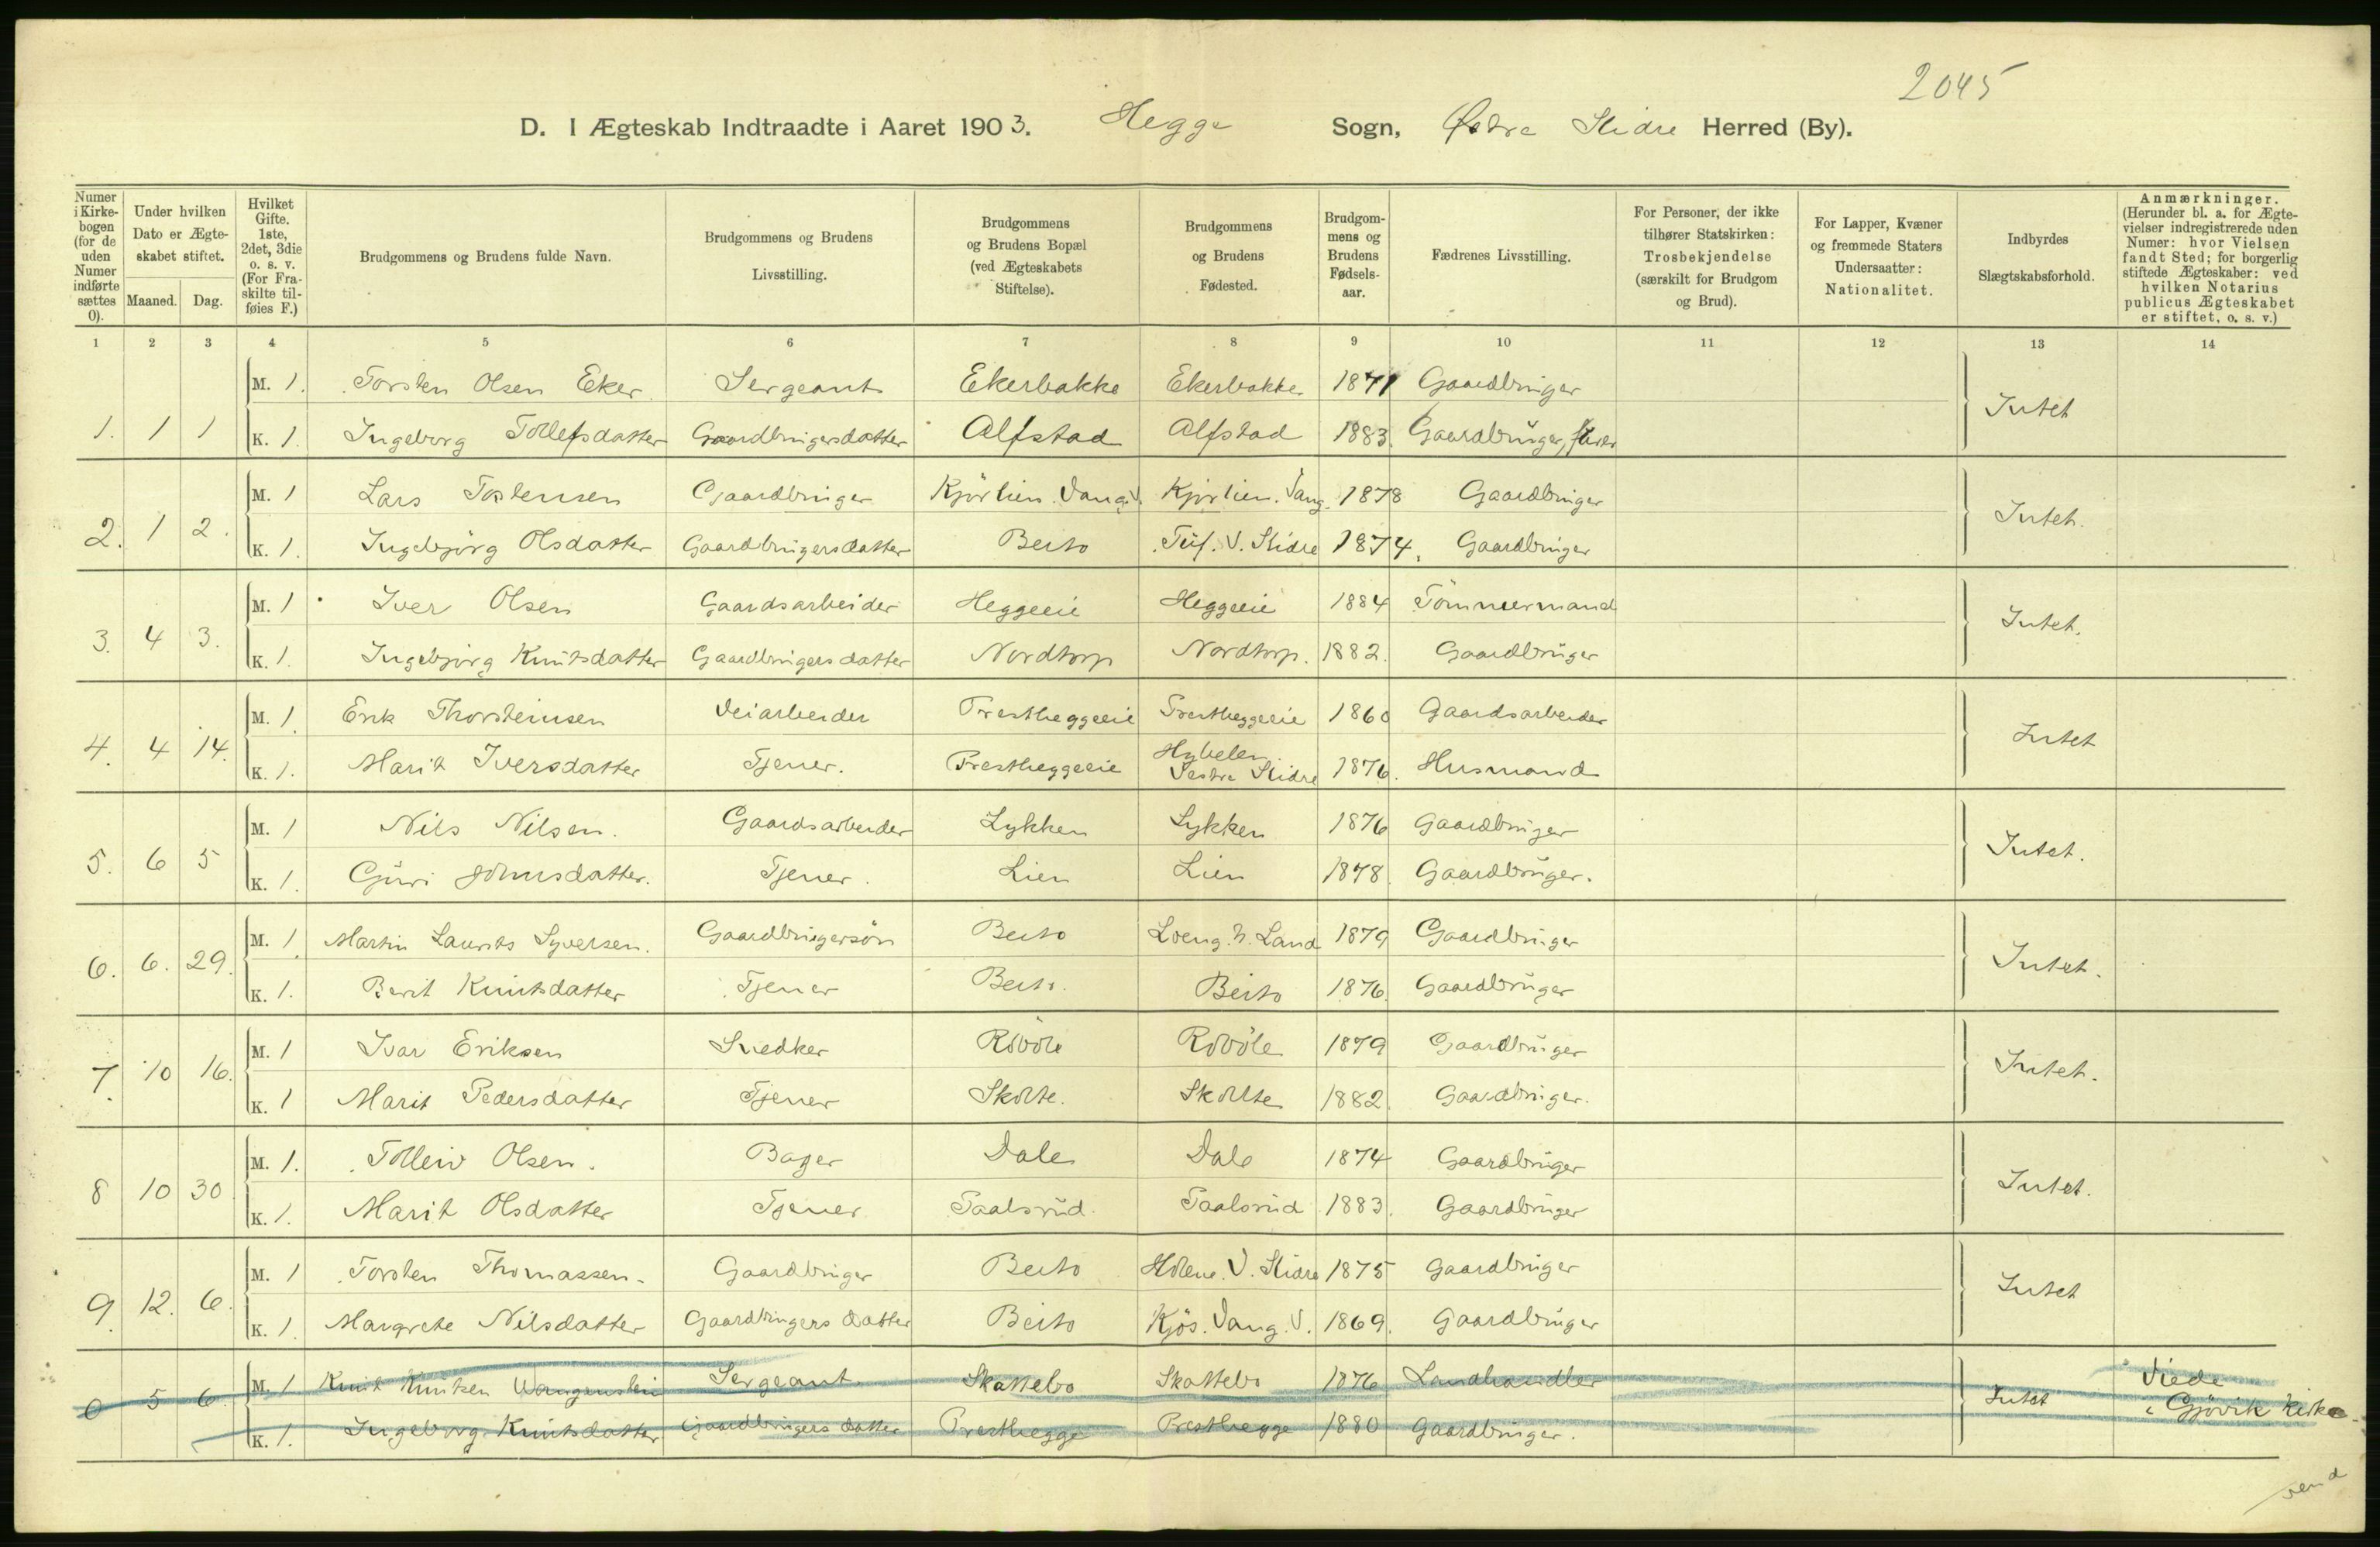 2045
D. I Ægteskab Indtraadte i Aaret 1903. Hegge Sogn, Østre Slidre Herred (By).
Numer i Kirkebogen (for de uden Numer indførte sættes 0).
Under hvilken Dato er Ægteskabet stiftet.
Maaned. Dag.
Hvilket Gifte. 1ste, 2det, 3die o. s. v. (For Fraskilte tilføies F.)
Brudgommens og Brudens fulde Navn.
Brudgommens og Brudens Livsstilling.
Brudgommens og Brudens Bopæl (ved Ægteskabets Stiftelse).
Brudgommens og Brudens Fødested.
Brudgommens og Brudens Fødselsaar.
Fædrenes Livsstilling.
For Personer, der ikke tilhører Statskirken: Trosbekjendelse (særskilt for Brudgom og Brud).
For Lapper, Kvæner og fremmede Staters Undersaatter: Nationalitet.
Indbyrdes Slægtskabsforhold.
Anmærkninger. (Herunder bl. a. for Ægtevielser indregistrerede uden Numer: hvor Vielsen fandt Sted; for borgerlig stiftede Ægteskaber: ved hvilken Notarius publicus Ægteskabet er stiftet, o. s. v.)
1 2 3 4 5 6 7 8 9 10 11 12 13 14
M. 1. Torsten Olsen Eker Sergeant Ekerbakke Ekerbakke 1871 Gaardbruger
1. 1 1 K. 1. Ingeborg Tollefsdatter Gaardbrugersdatter Alfstad Alfstad 1883. Gaardbruger, Intet
M. 1 Lars Tostensen Gaardbruger Kjörlien. Vang. V. Kjörlien. Vang. 1878 Gaardbruger
2. 1 2. K. 1. Ingebjörg Olsdatter Gaardbrugersdatter Beito Tuf. V. Slidre 1874. Gaardbruger Intet.
M. 1 Iver Olsen Gaardsarbeider Heggeeie Heggeeie 1884 Tömmermand
3. 4 3. K. 1. Ingebjörg Knutsdatter Gaardbrugersdatter Nordtorp Nordtorp. 1882. Gaardbruger Intet.
M. 1. Erik Thorsteinsen Veiarbeider Prestheggeeie Prestheggeeie 1860 Gaardsarbeider
4. 4 14. K. 1. Marit Iversdatter Tjener. Prestheggeeie Hybelen Vestre Slidre 1876. Husmand Intet
M. 1 Nils Nilsen. Gaardsarbeider Lykken Lykken 1876 Gaardbruger
5. 6 5 K. 1. Guri Johnsdatter. Tjener. Lien Lien 1878. Gaardbruger. Intet.
M. 1. Martin Laurits Syversen. Gaardbrugersön Beito Loeng. N. Land 1879 Gaardbruger
6. 6. 29. K. 1. Berit Knutsdatter Tjener Beito. Beito 1876. Gaardbruger Intet.
M. 1 Ivar Eriksen Snedker Roböle Roböle 1879 Gaardbruger
7. 10 16. K. 1 Marit Pedersdatter Tjener Skolte. Skolte 1882. Gaardbruger. Intet.
M. 1. Tolleiv Olsen. Bager Dale Dale 1874 Gaardbruger
8 10 30 K. 1. Marit Olsdatter Tjener Paalsrud. Paalsrud 1883. Gaardbruger Intet.
M. 1 Torsten Thomassen. Gaardbruger Beito Holene. V. Slidre 1875 Gaardbruger
9. 12. 6. K. 1. Margrete Nilsdatter Gaardbrugers datter Beito Kjös. Vang. V. 1869. Gaardbruger Intet
M. 1 Knut Knutsen Wangensten Sergeant Skattebo Skattebo 1876 Landhandler Viede
0 5 6. K. 1. Ingeborg Knutsdatter Gaardbrugers datter Presthegge Presthegge 1880 Gaardbruger. Intet i Gjövik Kirke.
vend